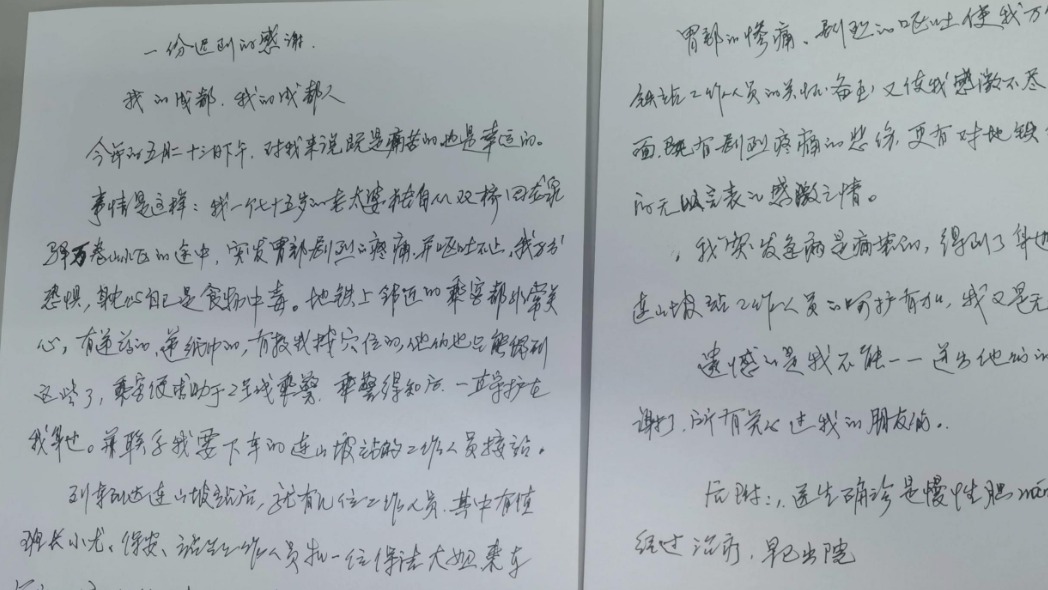 一份迟到的感谢.
我的成都.我的成都人
今年的五月二十三日下午.对我来说既是痛苦的也是幸运的。
事情是这样：我一个七十五岁的老太婆独自从双桥回龙泉
驿万卷山小区的途中,突发胃部剧烈的疼痛.并呕吐不止,我十分
恐惧,担心自己是食物中毒。地铁上邻近的乘客都非常关
心,有送药的,递纸巾的,有教我按穴位的,他们也只能做到
这些了,乘客便求助于2号线乘警.乘警得知后.一直守护在
我身边。并联系我要下车的连山坡站的工作人员接站。
列车到达连山坡站后,就有几位工作人员.其中有值
班长小尤、保安、站台工作人员和一位保洁大姐乘车
胃部的惨痛、剧烈的呕吐使我万
铁站工作人员的关怀备至又使我感激不尽
面,既有剧烈疼痛的悲伤,更有对地铁
的无以言表的感激之情。
我突发急病是痛苦的,得到了身边
连山坡站工作人员的呵护有加,我又是无
遗憾的是我不能一一道出他们的
谢了.所有关心过我的朋友们..
后附:.医生确诊是慢性胆
经过治疗,早已出院